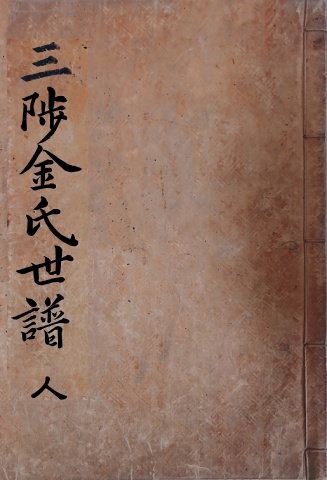 三陟金氏世譜 人